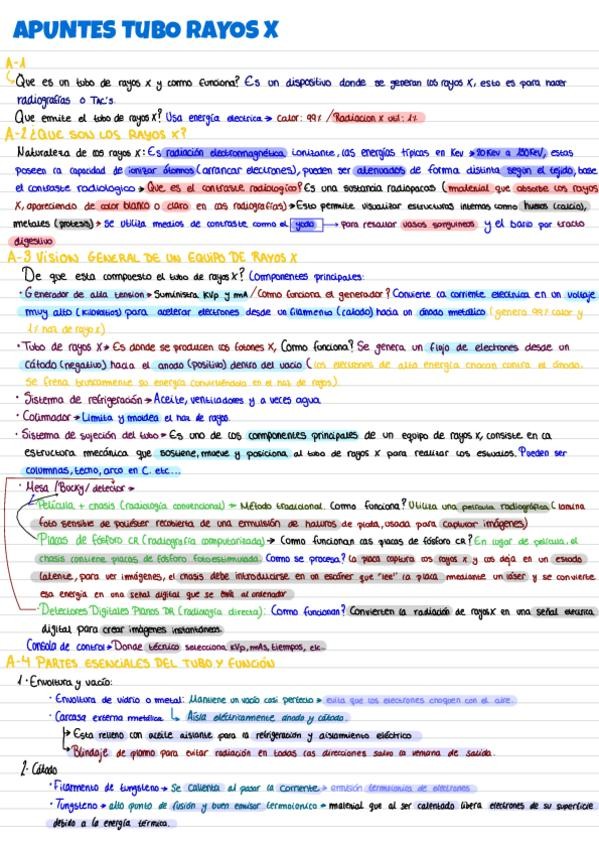 APUNTES TUBO RAYOS X
A-1
Que es un tubo de rayos x y como funciona? Es un dispositivo donde se generan los rayos X, esto es para hacer
radiografías o TAC's.
Que emite el tubo de rayos x? Usa energía electrica → Calor: 99% / Radiacion x util: 1%
A-2 ¿QUE SON LOS RAYOS X?
Naturaleza de los rayos X: Es radiación electromagnética ionizante, las energías típicas en Kev → 20Kev a 150Kev, estas
poseen la capacidad de ionizar átomos (arrancar electrones), pueden ser atenuados de forma distinta según el tejido, base
el contraste radiologico → Que es el contraste radiologico? Es una sustancia radiopaca (material que absorbe los rayos
X, apareciendo de color blanco o claro en las radiografías) → Esto permite visualizar estructuras internas como huesos (calcio),
metales (protesis) → Se utiliza medios de contraste como el yodo → para resaltar vasos sanguineos y el bario por tracto
digestivo
A-3 VISION GENERAL DE UN EQUIPO DE RAYOS X
De que esta compuesto el tubo de rayos X? Componentes principales:
· Generador de alta tension → Suministra KVp y mA / Como funciona el generador? Convierte la corriente electrica en un voltaje
muy alto (kilovoltios) para acelerar electrones desde un filamento (catodo) hacia un ánodo metalico (genera 99% calor y
1% haz de rayo x)
· Tubo de rayos X → Es donde se producen los fotones X, Como funciona? Se genera un flujo de electrones desde un
cátodo (negativo) hacia el anodo (positivo) dentro del vacio (los electrones de alta energía chocan contra el ánodo.
Se frena bruscamente su energía convirtiéndola en el haz de rayos).
· Sistema de refrigeración → Aceite, ventiladores y a veces agua
· Colimador → Limita y moldea el haz de rayos.
· Sistema de sujeción del tubo → Es uno de los componentes principales de un equipo de rayos X, consiste en la
estructura mecánica que sostiene, mueve y posiciona al tubo de rayos X para realizar los estudios. Pueden ser
columnas, techo, arco en C. etc...
· Mesa / Bucky / detector →
Película + chasis (radiología convencional) → Método tradicional. Como funciona? Utiliza una película radiográfica (lamina
foto sensible de poliéster recubierta de una emulsión de haluros de plata, usada para capturar imágenes)
Placas de fósforo CR (radiografía computarizada) → Como funcionan las placas de fósforo CR? En lugar de película, el
chasis contiene placas de fosforo fotoestimulada. Como se procesa? La placa captura los rayos X y los deja en un estado
latente, para ver imágenes, el chasis debe introducirse en un escáner que "lee" la placa mediante un láser y se convierte
esa energía en una señal digital que se envía al ordenador
Detectores Digitales Planos DR (radiología directa): Como funcionan? Convierten la radiación de rayos X en una señal electrica
digital para crear imágenes instantáneas.
Consola de control → Donde técnico selecciona KVp, mAs, tiempos, etc...
A-4 PARTES ESENCIALES DEL TUBO Y FUNCIÓN
1· Envoltura y vacío:
· Envoltura de vidrio o metal: Mantiene un vacío casi perfecto → evita que los electrones choquen con el aire.
· Carcasa externa metálica Aísla eléctricamente ánodo y cátodo.
Esta relleno con aceite aislante para la refrigeración y aislamiento eléctrico
Blindaje de plomo para evitar radiación en todas las direcciones salvo la ventana de salida.
2· Cátodo
· Filamento de tungsteno → Se calienta al pasar la corriente → emisión termoionica de electrones
· Tungsteno → alto punto de fusión y buen emisor termoionico → material que al ser calentado libera electrones de su superficie
debido a la energía térmica.